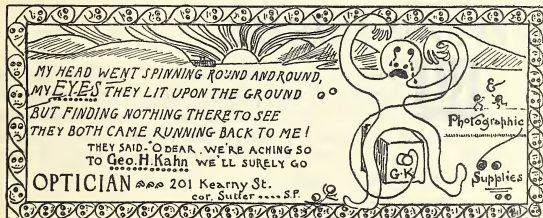 MY HEAD WENT SPINNING ROUND AND ROUND,
MY EYES THEY LIT UPON THE GROUND
BUT FINDING NOTHING THERE TO SEE
THEY BOTH CAME RUNNING BACK TO ME!
THEY SAID-"O DEAR, WE'RE ACHING SO
TO Geo. H. Kahn WE'LL SURELY GO
OPTICIAN 201 Kearny St.
cor. Sutter .... S.F.
G.K
&
Photographic
Supplies